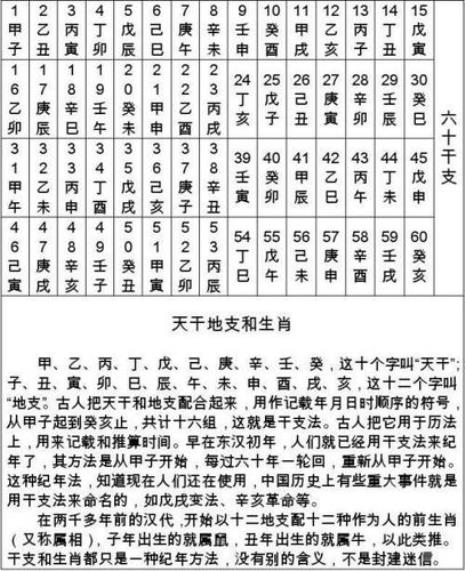 1 甲子 2 乙丑 3 丙寅 4 丁卯 5 戊辰 6 己巳 7 庚午 8 辛未 9 壬申 10 癸酉 11 甲戌 12 乙亥 13 丙子 14 丁丑 15 戊寅
16 乙卯 17 庚辰 18 辛巳 19 壬午 20 癸未 21 甲申 22 乙酉 23 丙戌 24 丁亥 25 戊子 26 己丑 27 庚寅 28 辛卯 29 壬辰 30 癸巳
31 甲午 32 乙未 33 丙申 34 丁酉 35 戊戌 36 己亥 37 庚子 38 辛丑 39 壬寅 40 癸卯 41 甲辰 42 乙巳 43 丙午 44 丁未 45 戊申
46 己寅 47 庚戌 48 辛亥 49 壬子 50 癸丑 51 甲寅 52 乙卯 53 丙辰 54 丁巳 55 戊午 56 己未 57 庚申 58 辛酉 59 壬戌 60 癸亥
六十干支
天干地支和生肖
甲、乙、丙、丁、戊、己、庚、辛、壬、癸，这十个字叫“天干”；
子、丑、寅、卯、巳、辰、午、未、申、酉、戌、亥，这十二个字叫
“地支”。古人把天干和地支配合起来，用作记载年月日时顺序的符号，
从甲子起到癸亥止，共计十六组，这就是干支法。古人把它用于历法
上，用来记载和推算时间。早在东汉初年，人们就已经用干支法来纪
年了，其方法是从甲子开始，每过六十年一轮回，重新从甲子开始。
这种纪年法，知道现在人们还在使用，中国历史上有些重大事件就是
用干支法来命名的，如戊戌变法、辛亥革命等。
在两千多年前的汉代，开始以十二地支配十二种作为人的前生肖
（又称属相），子年出生的就属鼠，丑年出生的就属牛，以此类推。
干支和生肖都只是一种纪年方法，没有别的含义，不是封建迷信。